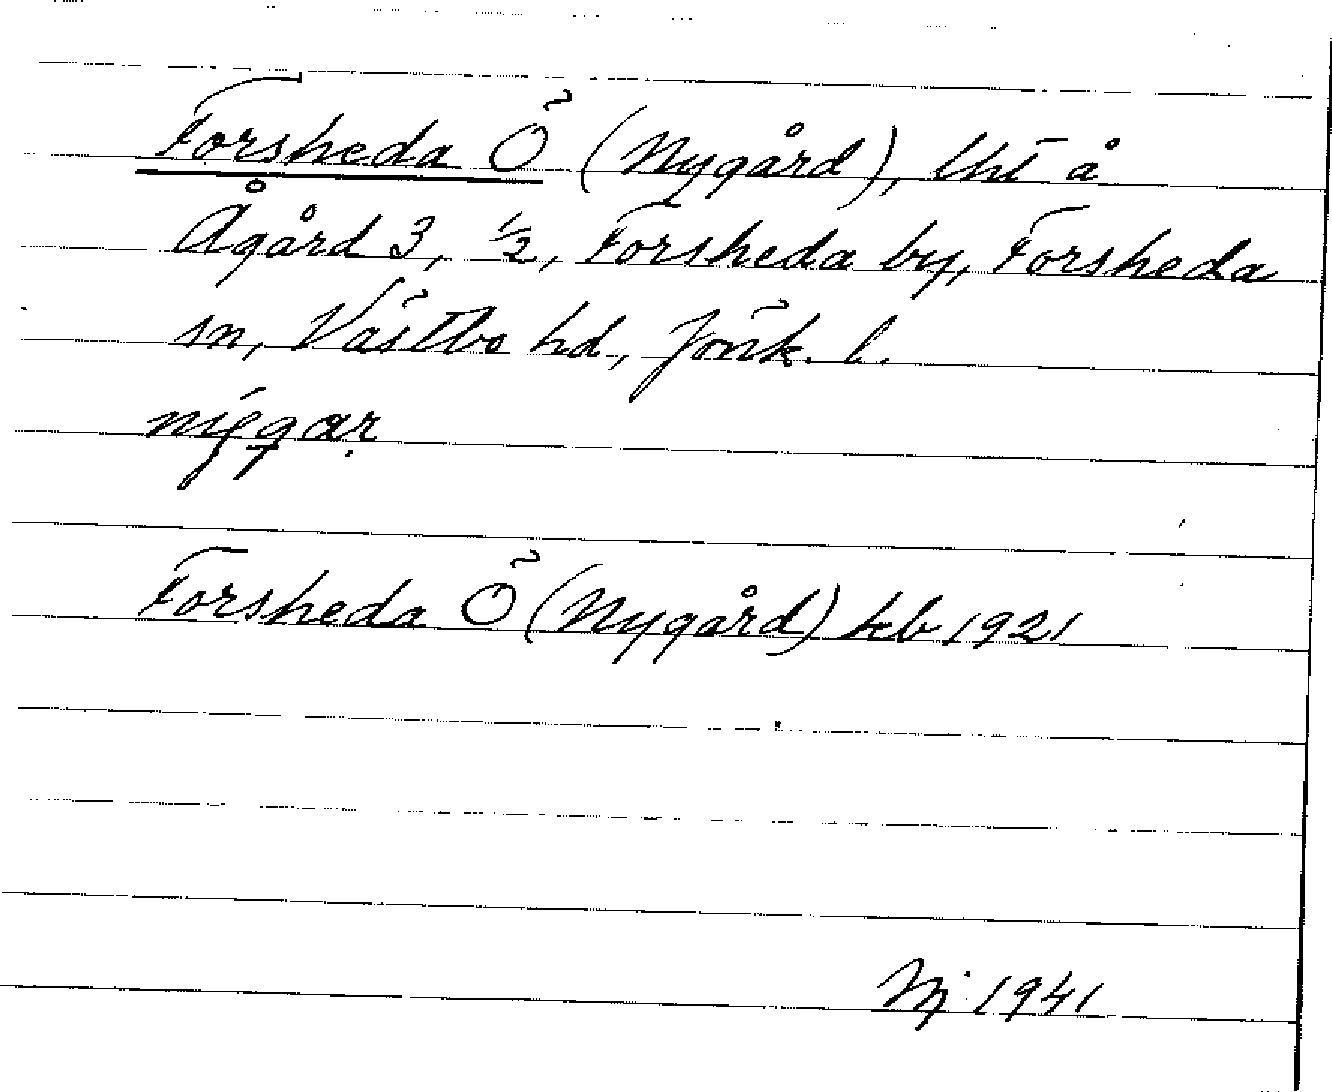 Forsheda Ö (Nygård), lht å
Ågård 3, 1/2, Forsheda by, Forsheda
sn, Västbo hd, Jönk. l.
Forsheda Ö (Nygård) kb 1921
1941